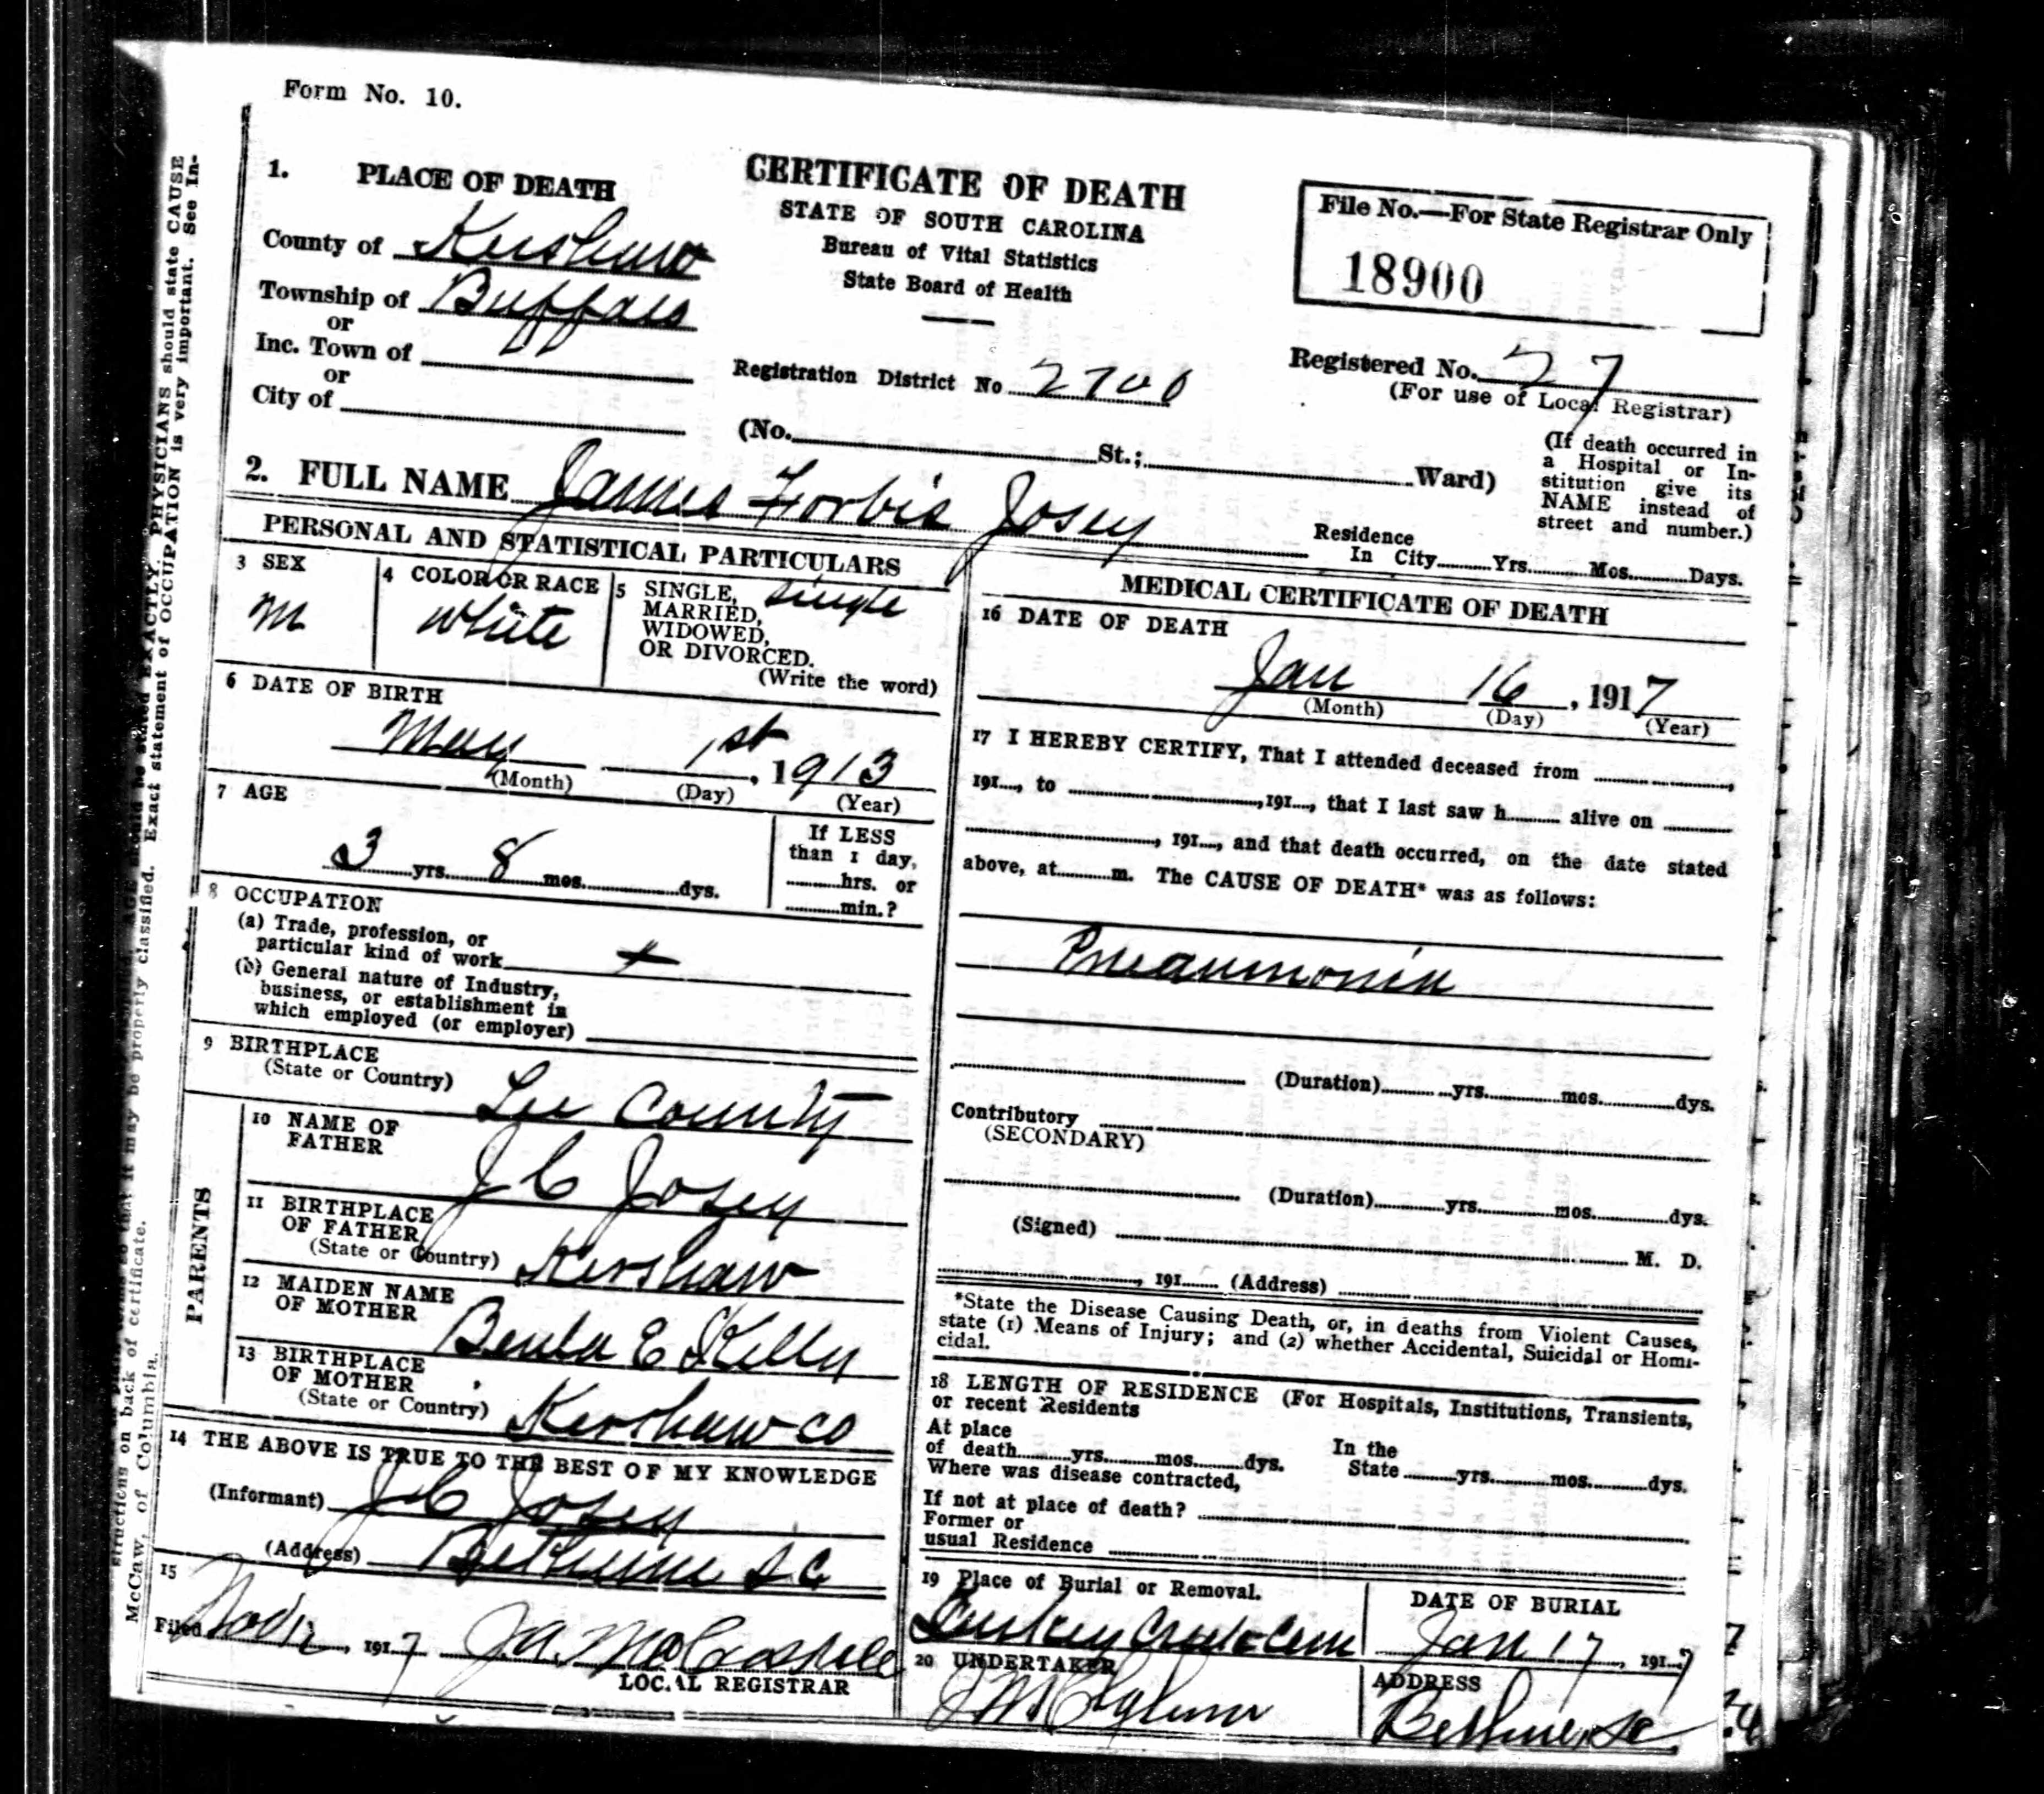 Form No. 10.
1. PLACE OF DEATH
County of Kershaw
Township of Buffalo
or
Inc. Town of
or
City of
CERTIFICATE OF DEATH
STATE OF SOUTH CAROLINA
Bureau of Vital Statistics
State Board of Health
File No.—For State Registrar Only
18900
Registration District No 2700
Registered No. 27
(For use of Local Registrar)
(No. St.; Ward)
(If death occurred in
a Hospital or In-
stitution give its
NAME instead of
street and number.)
2. FULL NAME James Forbis Josey
Residence
In City Yrs. Mos. Days.
PERSONAL AND STATISTICAL PARTICULARS
3 SEX
M
4 COLOR OR RACE
White
5 SINGLE,
MARRIED,
WIDOWED,
OR DIVORCED.
(Write the word)
Single
6 DATE OF BIRTH
May 1st, 1913
(Month) (Day) (Year)
7 AGE
3 yrs. 8 mos. dys.
If LESS
than 1 day,
hrs. or
min.?
8 OCCUPATION
(a) Trade, profession, or
particular kind of work
(b) General nature of Industry,
business, or establishment in
which employed (or employer)
9 BIRTHPLACE
(State or Country)
Lee County
PARENTS
10 NAME OF
FATHER
J C Josey
11 BIRTHPLACE
OF FATHER
(State or Country)
Kershaw
12 MAIDEN NAME
OF MOTHER
Beula E Kelly
13 BIRTHPLACE
OF MOTHER
(State or Country)
Kershaw Co
14 THE ABOVE IS TRUE TO THE BEST OF MY KNOWLEDGE
(Informant) J C Josey
(Address) Bethune S C
15
Filed 1917
LOCAL REGISTRAR
MEDICAL CERTIFICATE OF DEATH
16 DATE OF DEATH
Jan 16, 1917
(Month) (Day) (Year)
17 I HEREBY CERTIFY, That I attended deceased from ,
191, to , 191, that I last saw h alive on
, 191, and that death occurred, on the date stated
above, at m. The CAUSE OF DEATH* was as follows:
Pneaumonia
(Duration) yrs. mos. dys.
Contributory
(SECONDARY)
(Duration) yrs. mos. dys.
(Signed) M. D.
, 191 (Address)
*State the Disease Causing Death, or, in deaths from Violent Causes,
state (1) Means of Injury; and (2) whether Accidental, Suicidal or Homi-
cidal.
18 LENGTH OF RESIDENCE (For Hospitals, Institutions, Transients,
or recent Residents
At place
of death yrs. mos. dys.
In the
State yrs. mos. dys.
Where was disease contracted,
If not at place of death?
Former or
usual Residence
19 Place of Burial or Removal.
DATE OF BURIAL
Jan 17, 1917
20 UNDERTAKER
ADDRESS
Bethune, SC
PHYSICIANS should state CAUSE
Exact statement of OCCUPATION is very important. See In-
structions on back of certificate.
McCaw, of Columbia.